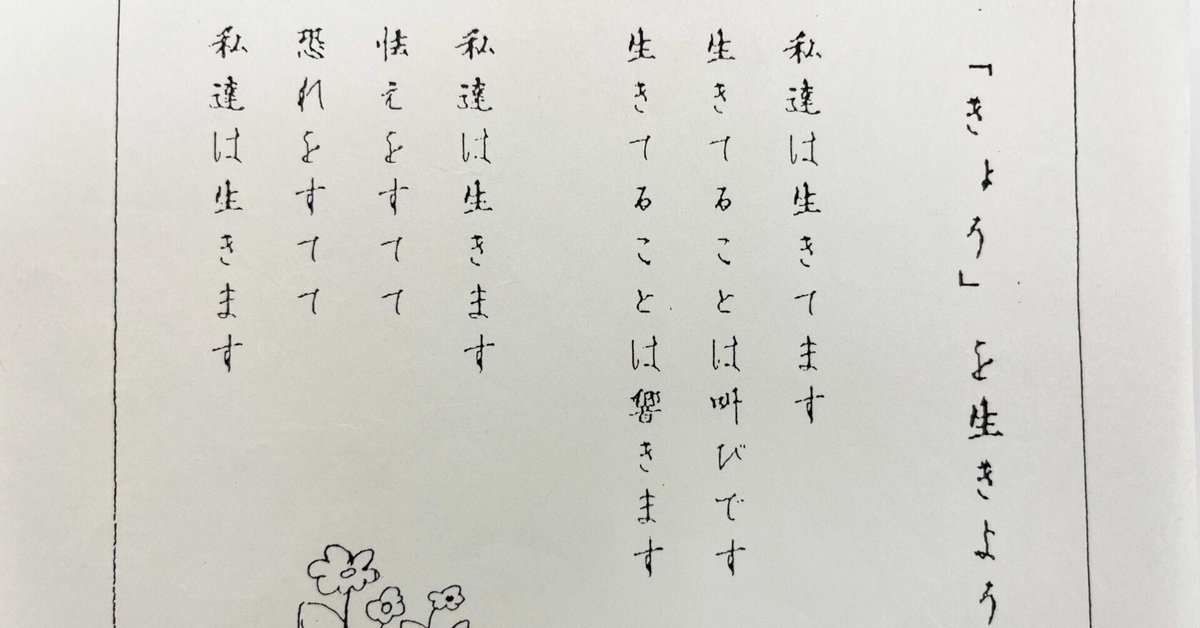 「きょう」を生きよう
私達は生きてます
生きてることは叫びです
生きてることは響きます
私達は生きます
怯えをすてて
恐れをすてて
私達は生きます